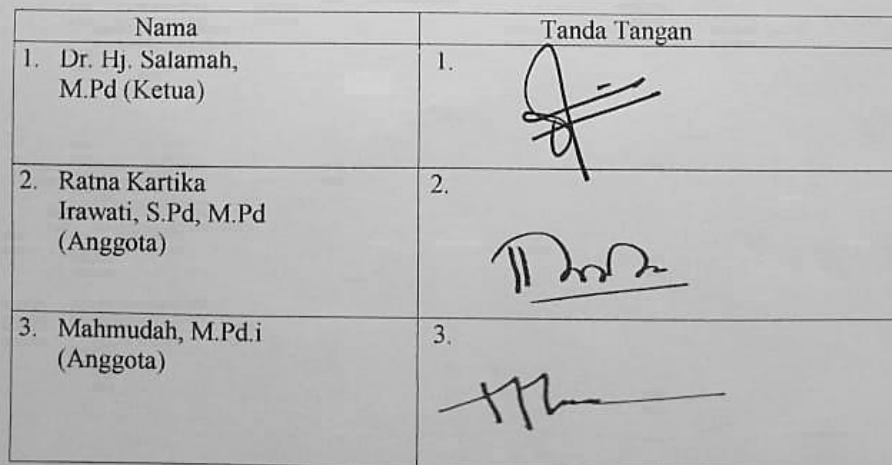 Nama
Tanda Tangan
1. Dr. Hj. Salamah,
M.Pd (Ketua)
1.
2. Ratna Kartika
Irawati, S.Pd, M.Pd
(Anggota)
2.
3. Mahmudah, M.Pd.i
(Anggota)
3.